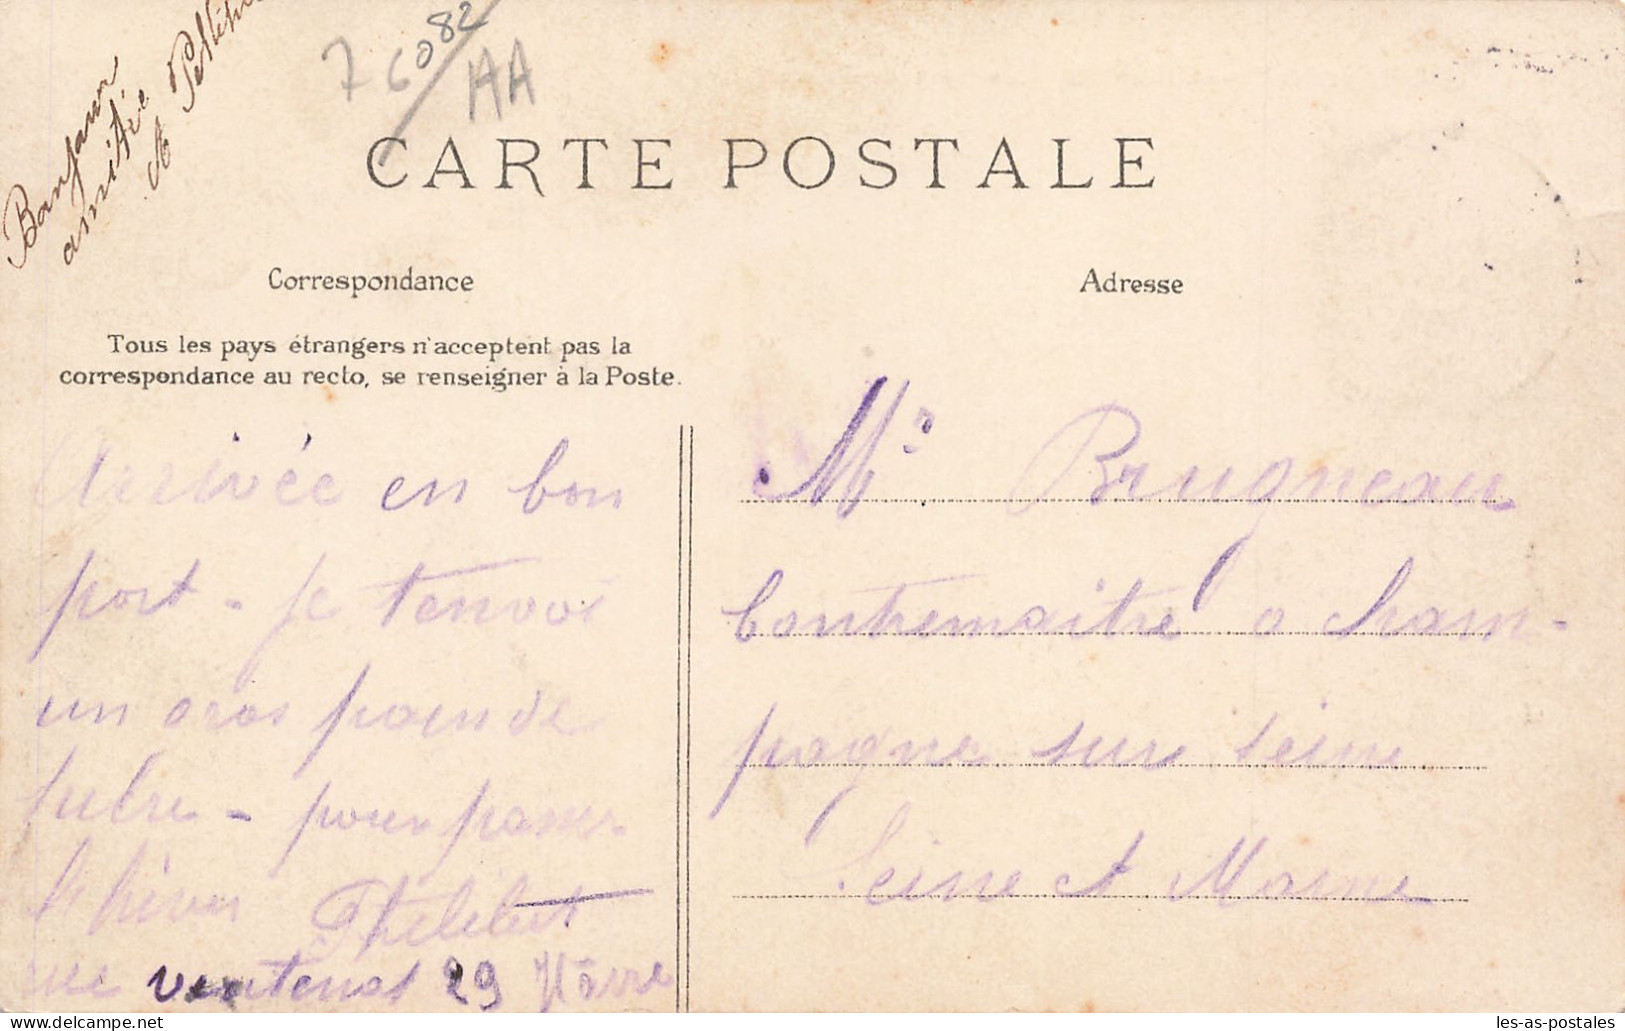 Bonjour
amitié
A
76082
AA
CARTE POSTALE
Correspondance
Adresse
Tous les pays étrangers n'acceptent pas la
correspondance au recto, se renseigner à la Poste.
Arrivée en bon
port - je tenvoi
un gros pain de
sucre - pour passer
l'hiver Philibert
rue ventenat 29 Havre
Mr. Brugneau
Contremaitre a Cham-
pagne sur seine
Seine et Marne
les-as-postales